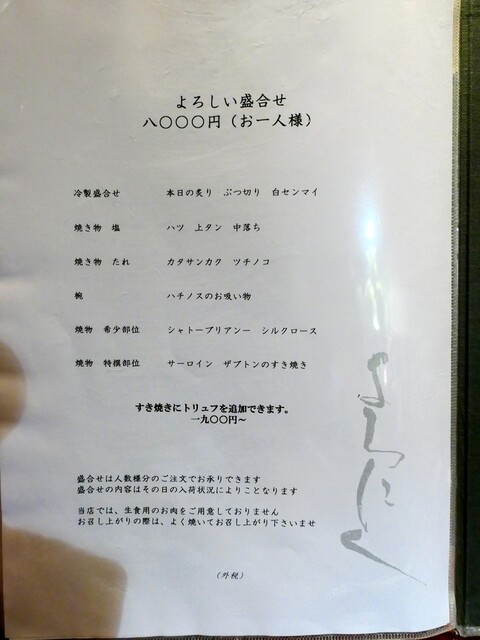 よろしい盛合せ
八〇〇〇円（お一人様）
冷製盛合せ　本日の炙り　ぶつ切り　白センマイ
焼き物　塩　ハツ　上タン　中落ち
焼き物　たれ　カタサンカク　ツチノコ
椀　ハチノスのお吸い物
焼物　希少部位　シャトーブリアンー　シルクロース
焼物　特撰部位　サーロイン　ザブトンのすき焼き
すき焼きにトリュフを追加できます。
一九〇〇円～
盛合せは人数様分のご注文でお承りできます
盛合せの内容はその日の入荷状況によりことなります
当店では、生食用のお肉をご用意しておりません
お召し上がりの際は、よく焼いてお召し上がり下さいませ
（外税）
よろにく